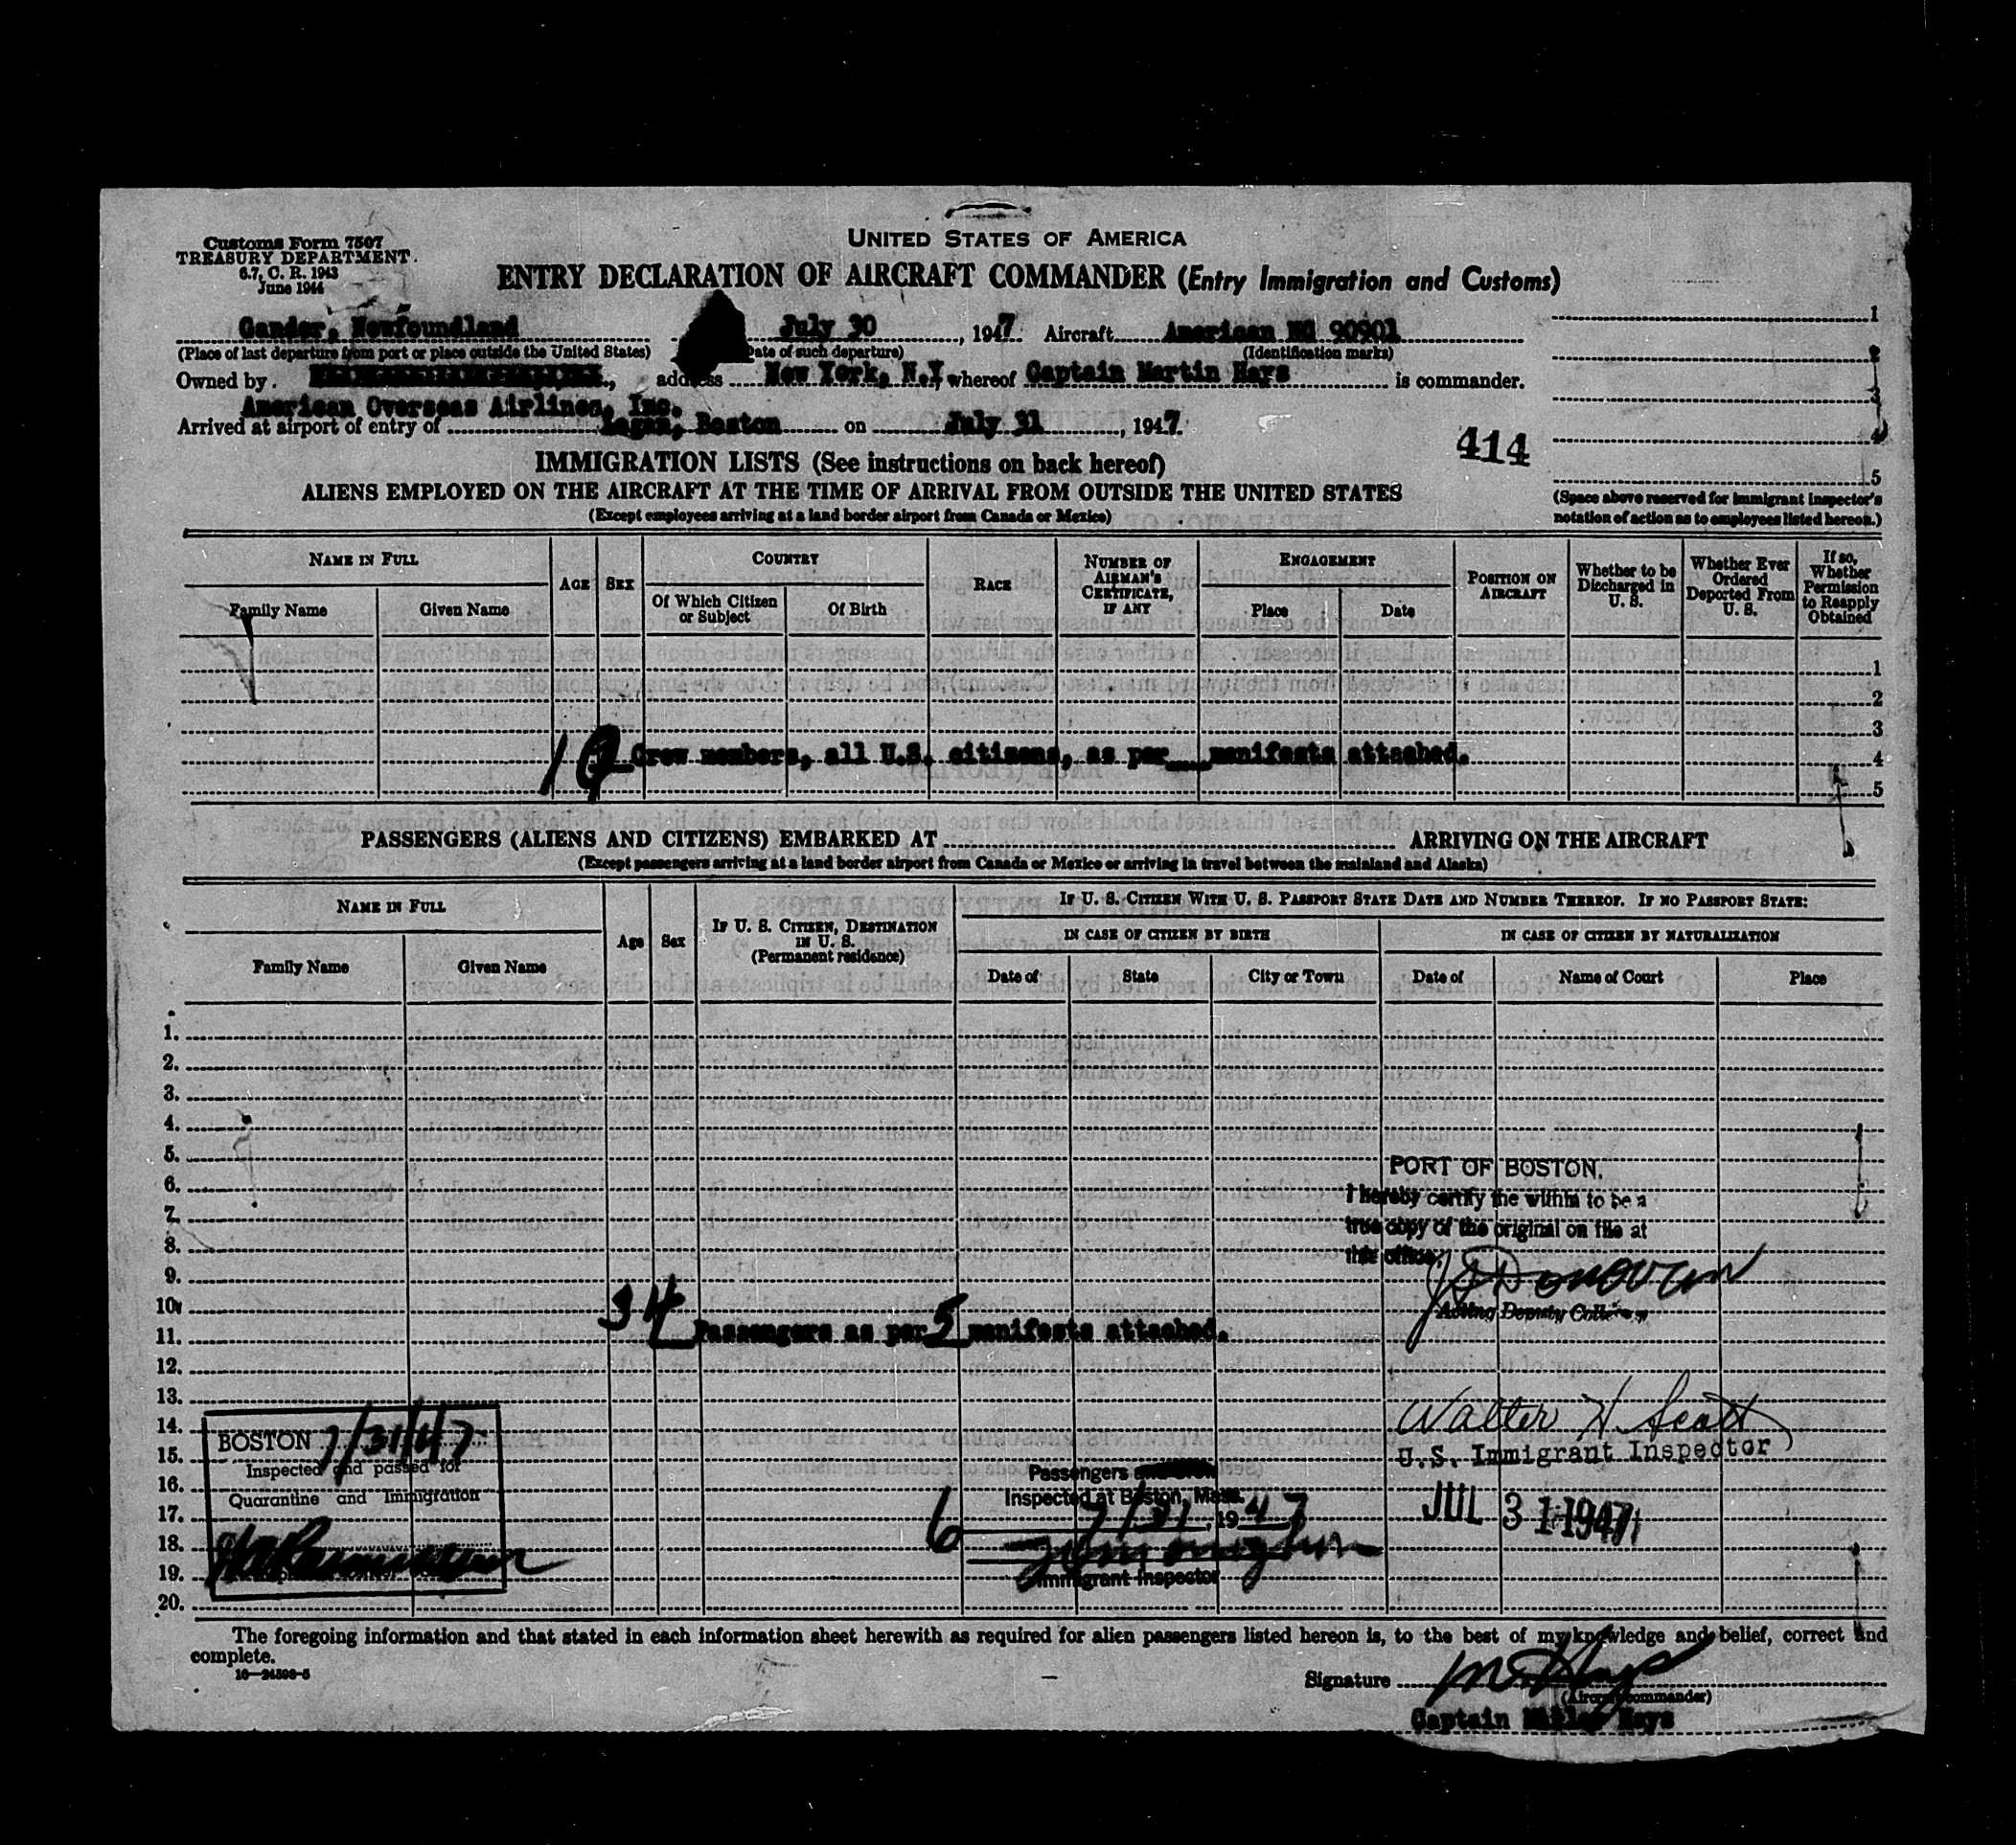 Customs Form 7507
TREASURY DEPARTMENT.
6.7, C. R. 1943
June 1944
UNITED STATES OF AMERICA
ENTRY DECLARATION OF AIRCRAFT COMMANDER (Entry Immigration and Customs)
Gander, Newfoundland July 30, 1947 Aircraft American NC 90901
(Place of last departure from port or place outside the United States) (Date of such departure) (Identification marks)
Owned by address New York, N.Y. whereof Captain Martin Hays is commander.
American Overseas Airlines, Inc.
Arrived at airport of entry of Logan, Boston on July 31, 1947.
1
2
3
4
5
414
IMMIGRATION LISTS (See instructions on back hereof)
ALIENS EMPLOYED ON THE AIRCRAFT AT THE TIME OF ARRIVAL FROM OUTSIDE THE UNITED STATES
(Except employees arriving at a land border airport from Canada or Mexico)
(Space above reserved for immigrant inspector's
notation of action as to employees listed hereon.)
NAME IN FULL
Family Name
Given Name
AGE
SEX
COUNTRY
Of Which Citizen
or Subject
Of Birth
RACE
NUMBER OF
AIRMAN'S
CERTIFICATE,
IF ANY
ENGAGEMENT
Place
Date
POSITION ON
AIRCRAFT
Whether to be
Discharged in
U. S.
Whether Ever
Ordered
Deported From
U. S.
If so,
Whether
Permission
to Reapply
Obtained
1
2
3
Crew members, all U.S. citizens, as per manifests attached. 4
5
PASSENGERS (ALIENS AND CITIZENS) EMBARKED AT ARRIVING ON THE AIRCRAFT
(Except passengers arriving at a land border airport from Canada or Mexico or arriving in travel between the mainland and Alaska)
NAME IN FULL
Family Name
Given Name
Age
Sex
IF U. S. CITIZEN, DESTINATION
IN U. S.
(Permanent residence)
IF U. S. CITIZEN WITH U. S. PASSPORT STATE DATE AND NUMBER THEREOF. IF NO PASSPORT STATE:
IN CASE OF CITIZEN BY BIRTH
IN CASE OF CITIZEN BY NATURALIZATION
Date of
State
City or Town
Date of
Name of Court
Place
1.
2.
3.
4.
5.
6.
7.
8.
9.
10.
11.
12.
13.
14.
15.
16.
17.
18.
19.
20.
PORT OF BOSTON.
I hereby certify the within to be a
true copy of the original on file at
this office.
Donovan
Acting Deputy
34 Passengers as per 5 manifests attached.
Walter H Scott
U.S. Immigrant Inspector
JUL 31 1947
BOSTON 7/31/47
Inspected and passed for
Quarantine and Immigration
Passengers
Inspected at Boston, Mass.
6 7/31, 1947
Immigrant Inspector
The foregoing information and that stated in each information sheet herewith as required for alien passengers listed hereon is, to the best of my knowledge and belief, correct and
complete.
16—24598-5
Signature M Hays
(Aircraft commander)
Captain Hays